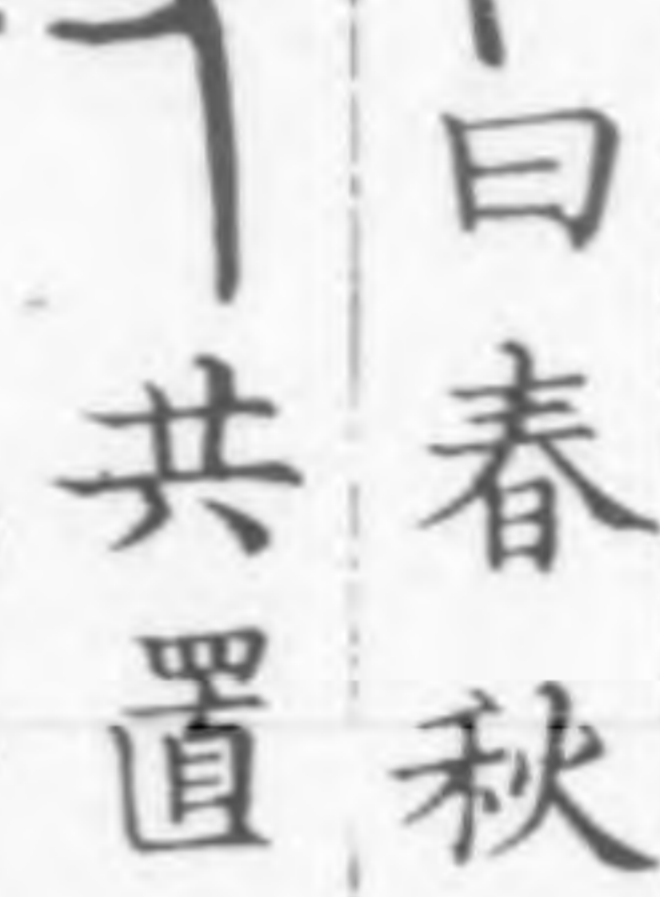 曰春秋
共置